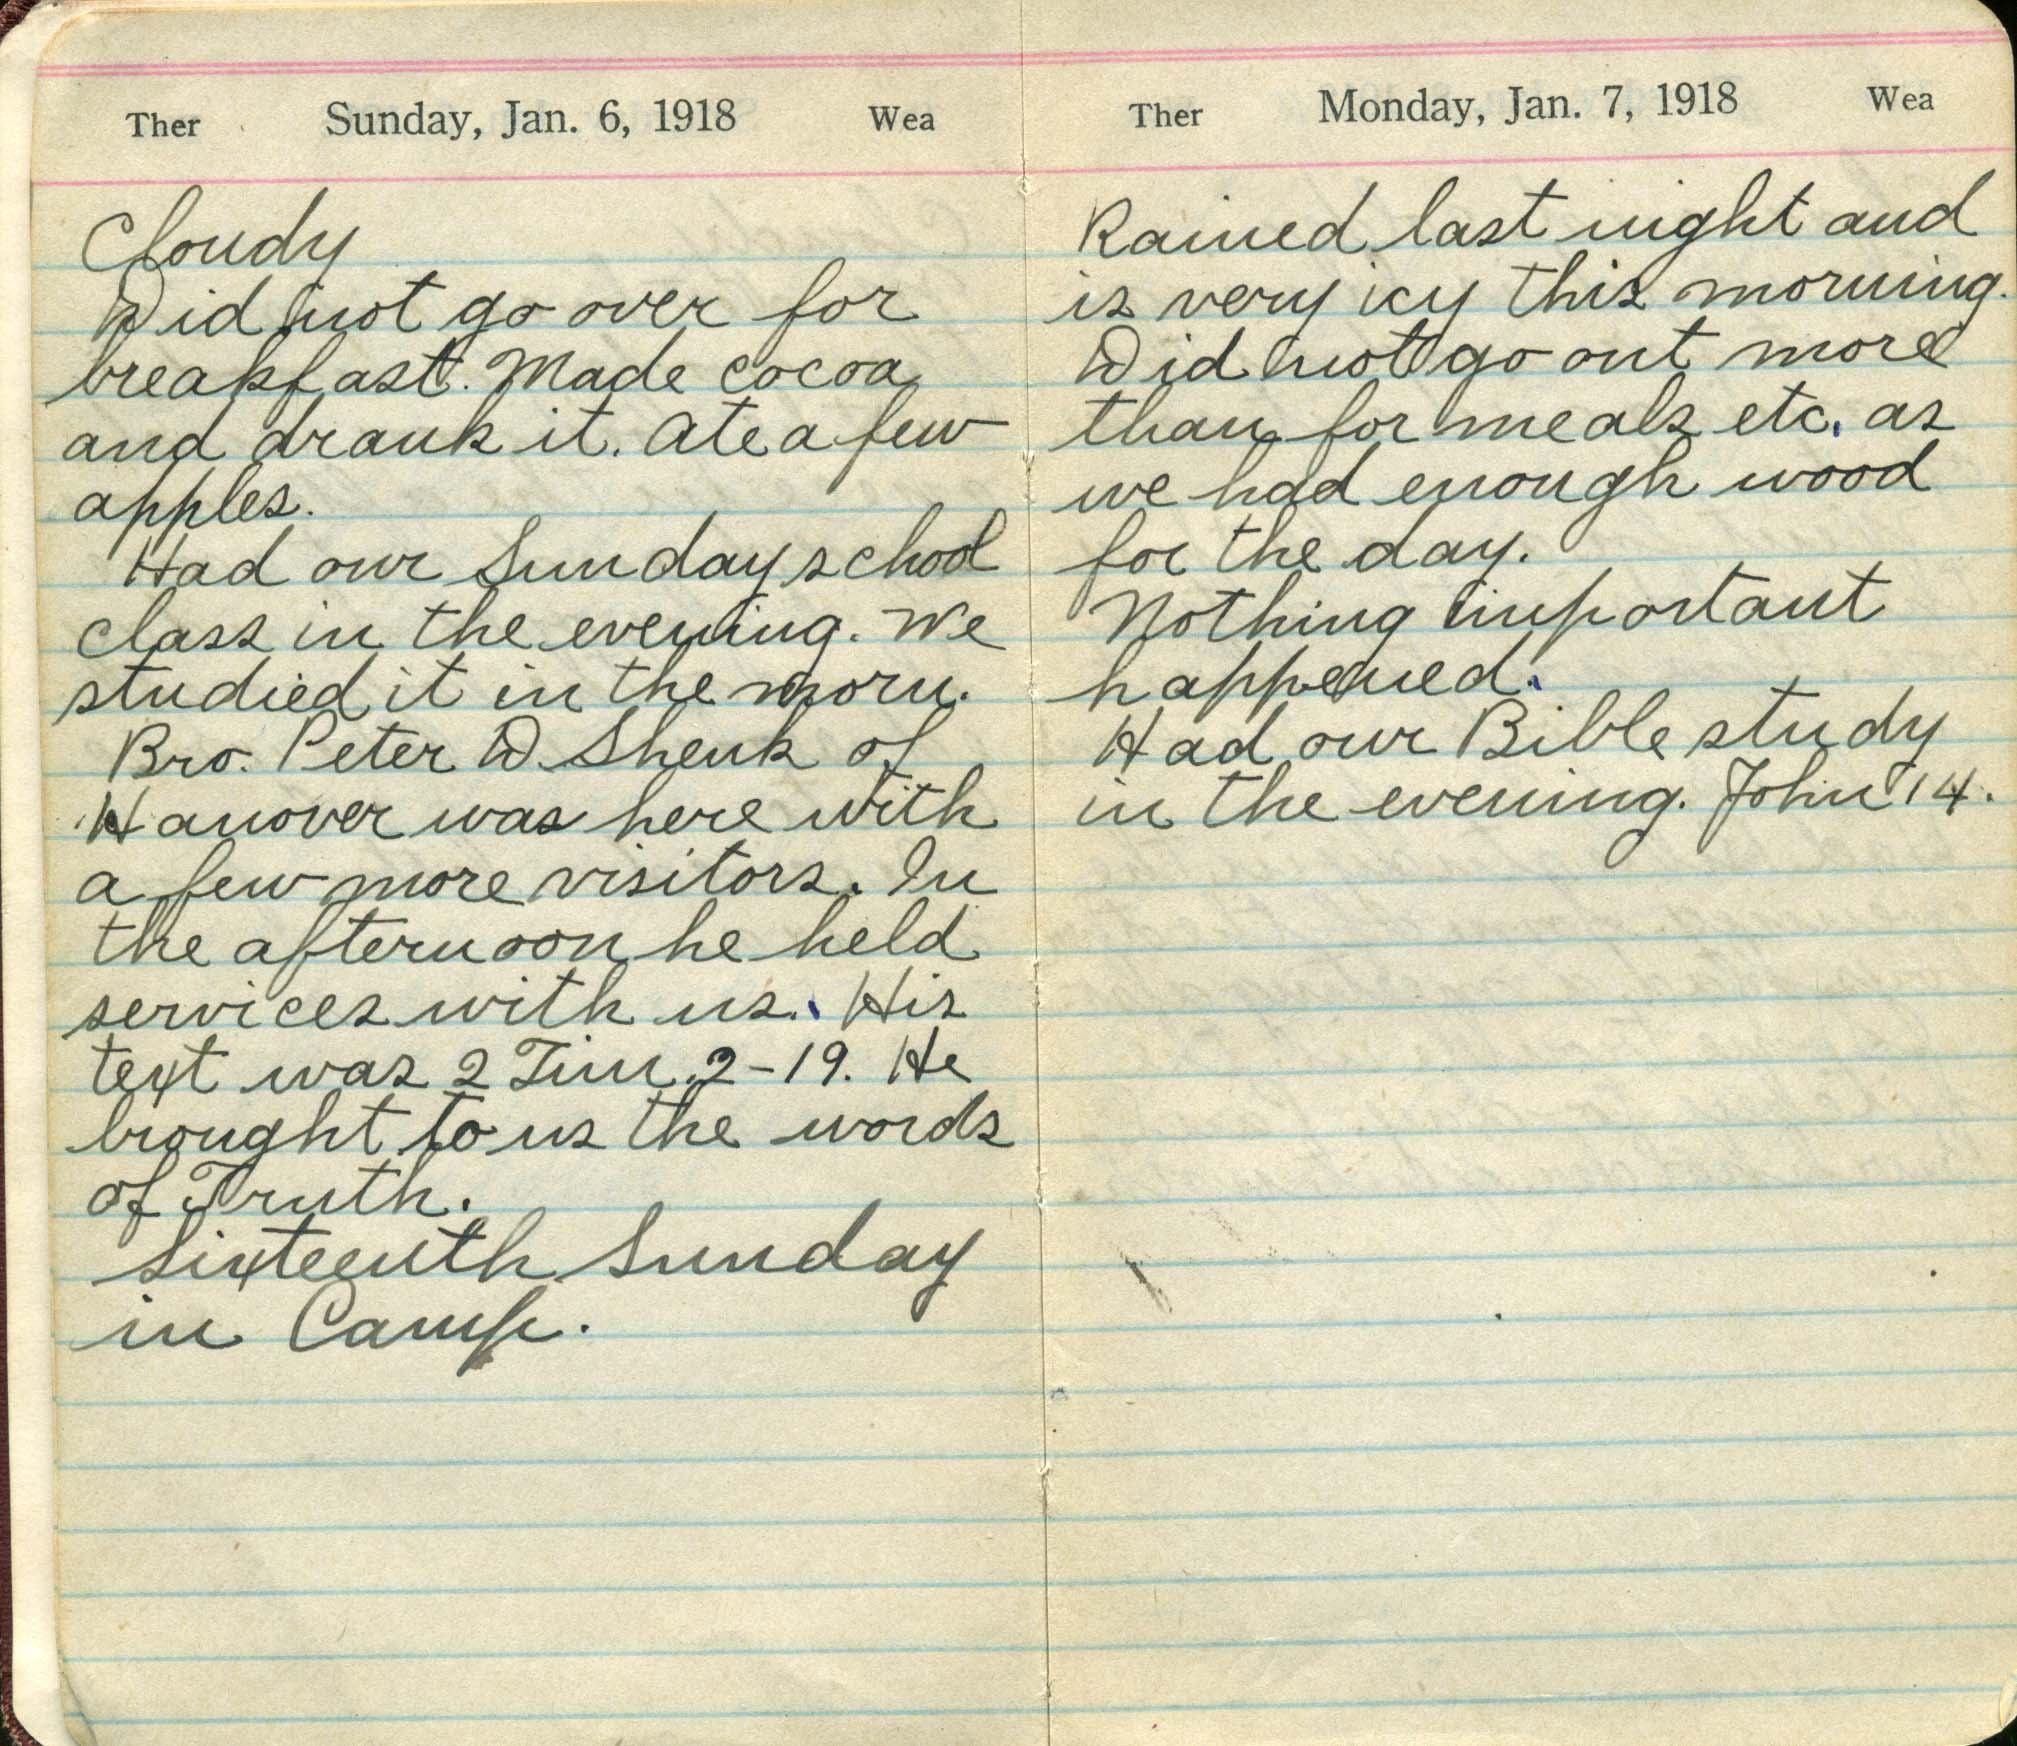 Ther Sunday, Jan. 6, 1918 Wea
Cloudy
Did not go over for
breakfast. Made cocoa
and drank it. Ate a few
apples.
Had our Sunday school
class in the evening. We
studied it in the morn.
Bro. Peter D. Shenk of
Hanover was here with
a few more visitors. In
the afternoon he held
services with us. His
text was 2 Tim. 2-19. He
brought to us the words
of Truth.
Sixteenth Sunday
in Camp.
Ther Monday, Jan. 7, 1918 Wea
Rained last night and
is very icy this morning.
Did not go out more
than for meals etc. as
we had enough wood
for the day.
Nothing important
happened.
Had our Bible study
in the evening. John 14.